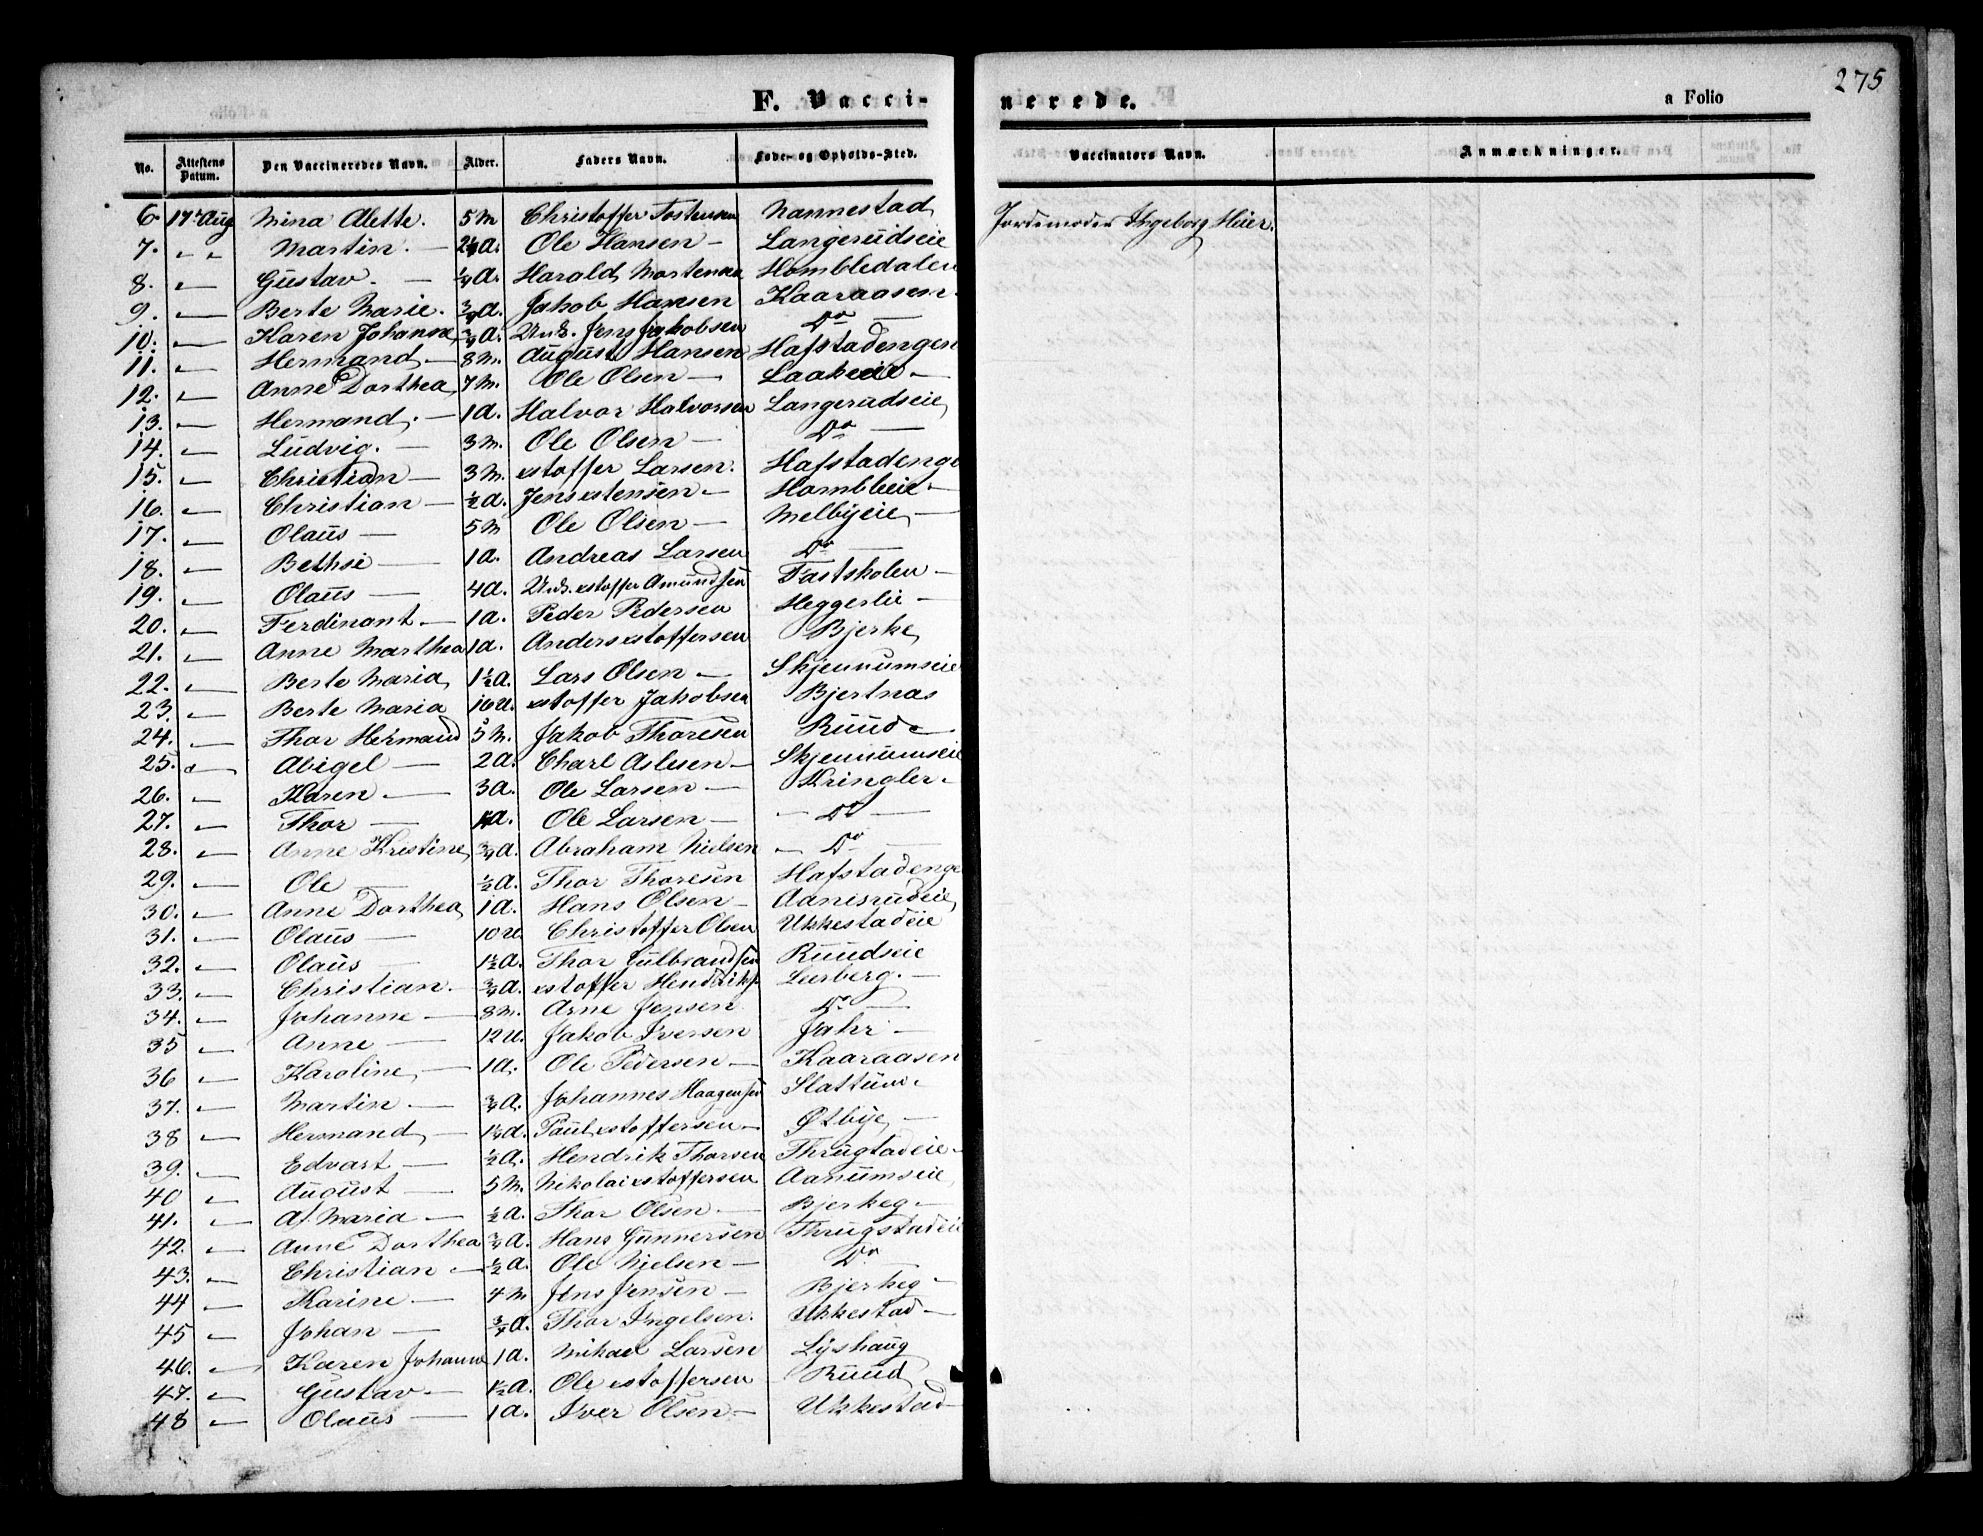 275
F. Vaccinerede. a Folio
No. Attestens Datum. Den Vaccineredes Navn. Alder. Faders Navn. Føde- og Opholds-Sted. Vaccinators Navn. Anmærkninger.
6. 17de Aug Mina Alette. 5 M Christoffer Tostensen Nannestad Jordemoder Ingeborg Meier.
7. " " Martin. — 2¼ A. Ole Hansen — Langerudseie
8. " Gustav. — ¼ A. Harald Mortensen Hombledalen
9. " Berte Marie. ¾ A. Jakob Hansen Kaaraasen.
10. " Karen Johanne ¾ A. Jens Jakobsen Do —
11. " Hermand — 8 M. August Hansen Hafstadengen
12. " Anne Dorthea 7 M. Ole Olsen —
13. " Hermand. — 1 A. Halvor Halvorsen Langerudseie
14. " Ludvig. — 3 M. Ole Olsen — Do —
15. " Christian — 3 M xstoffer Larsen. Hafstadenge
16. " Christian — ½ A. Jens xstensen — Hombleie —
17. " Olaus — 5 M Ole Olsen — Melbyeie —
18. " Bethsi — 1 A. Andreas Larsen Do —
19. " Olaus — 4 A. xstoffer Amundsen —
20. " Ferdinant — 1 A. Peder Pedersen Heggerlie —
21. " Anne Marthea 1 A. Anders xstoffersen Bjerke
22. " Berte Maria 1½ A. Lars Olsen — Skjennumseie
23. " Berte Maria 16 U. xstoffer Jakobsen Bjertnæs
24. " Thor Hermand 5 M. Jakob Thoresen Ruud —
25. " Abigel — 2 A. Charl Aslesen — Skjennumseie
26. " Karen — 3 A. Ole Larsen — Kringler —
27. " Thor — A. Ole Larsen — — Do —
28. " Anne Kristine ¾ A. Abraham Nielsen — Do —
29. " Ole — ½ A. Thor Thoresen Hafstadenge
30. " Anne Dorthea 1 A. Hans Olsen — Aanerudeie
31. " Olaus — 10 U. Christoffer Olsen Ukkestadeie
32. " Olaus — 1½ A. Thor Gulbrandsen Ruudseie
33. " Christian. — ¾ A. xstoffer Hendriks. Leerberg. —
34. " Johanne — 8 M. Arne Jensen Do —
35 " Anne — 12 U. Jakob Iversen Jahr —
36 " Karoline — 1 A. Ole Pedersen — Kaaraasen
37. " Martin — ¾ A. Johannes Haagensen Slattum —
38 " Hermand — 1¼ A. Paul xstoffersen — Østbye —
39. " Edvart — ½ A. Hendrik Thorsen Thrugtadeie —
40 " August — 5 M. Nikolai xstoffersen Aanumseie
41. " A. Maria — ½ A. Thor Olsen — Bjerkeg —
42. " Anne Dorthea ¾ A. Hans Gunnersen Thrugstadeie
43. " Christian — ½ A. Ole Nielsen — Do —
44 " Karine — 4 M Jens Jensen — Bjerkeg —
45 " Johan — ¾ A. Thor Ingelsen. Ukkestad —
46. " Karen Johanne 1 A. Mikael Larsen Lyshaug
47. " Gustav — 1½ A. Ole xstoffersen Ruud
48 " Olaus — 1 A. Iver Olsen — Ukkestad —